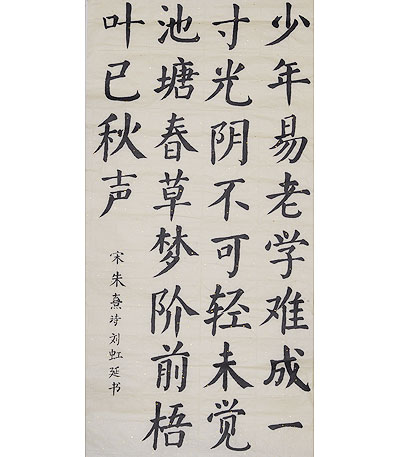 少年易老学难成一
寸光阴不可轻未觉
池塘春草梦阶前梧
叶已秋声
宋朱熹诗刘虹延书